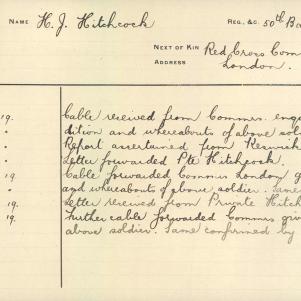 NAME H. J. Hitchcock REG., &C. 50th Ba
NEXT OF KIN Red Cross Com
ADDRESS London.
19. Cable received from Commrs. enqu
" dition and whereabouts of above sol
" Report ascertained from
" Letter forwarded Pte Hitchcock.
19 Cable forwarded Commrs London g
" and whereabouts of above soldier. Same
19. Letter received from Private Hitch
19. Further cable forwarded Commrs giv
above soldier. Same confirmed by